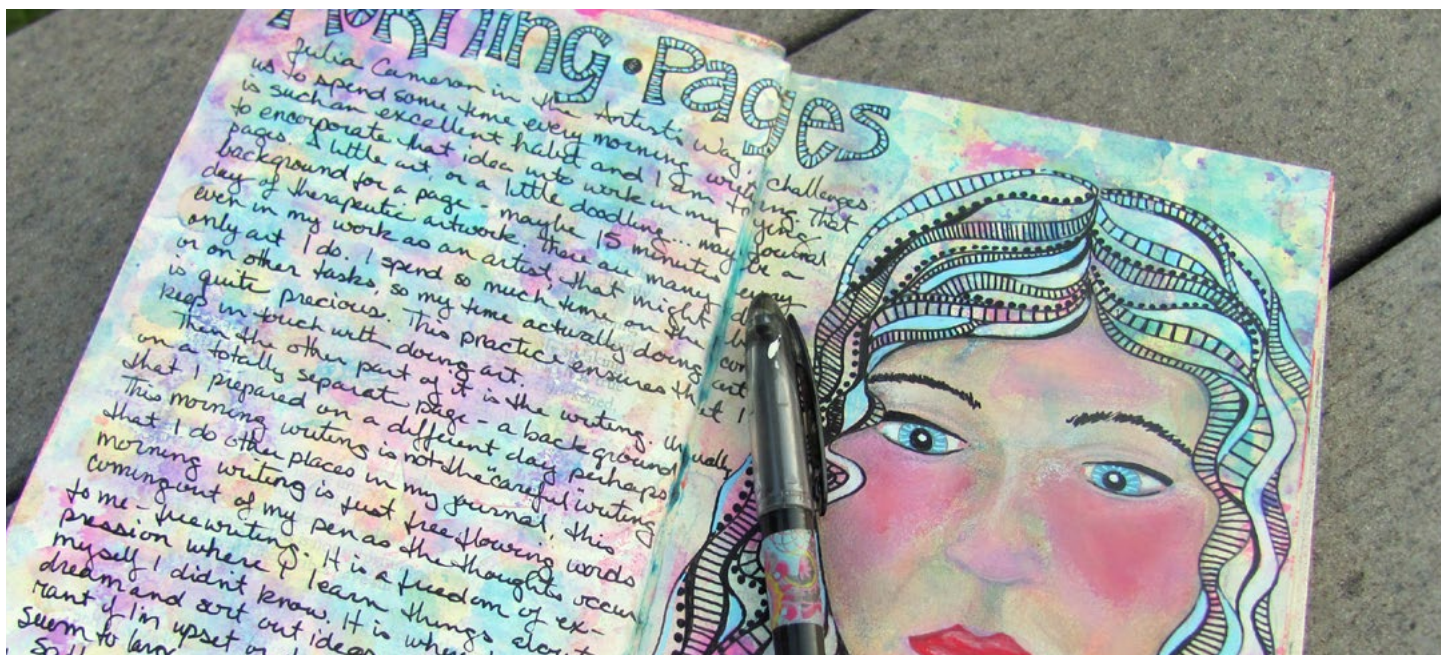 Morning • Pages
Julia Cameron in the Artist's Way, challenges
us to spend some time every morning writing. That
is such an excellent habit and I am trying
to encorporate that idea into work in my journal
pages. A little art or a little doodling... may be a
background for a page - maybe 15 minutes every
day of therapeutic artwork. There are many
even in my work as an artist, that might be
only art I do. I spend so much time on the
or on other tasks, so my time actually doing art
is quite precious. This practice ensures that I
keep in touch with doing art.
Then the other part of it is the writing. Usually
on a totally separate page - a background
that I prepared on a different day perhaps
This morning writing is not the "careful writing
that I do other places in my journal, this
morning writing is just free flowing words
coming out of my pen as the thoughts occur
to me - freewriting. It is a freedom of ex-
pression where I learn things about
myself I didn't know. It is where
dream and sort out ideas
rant if I'm upset or
seem to
So